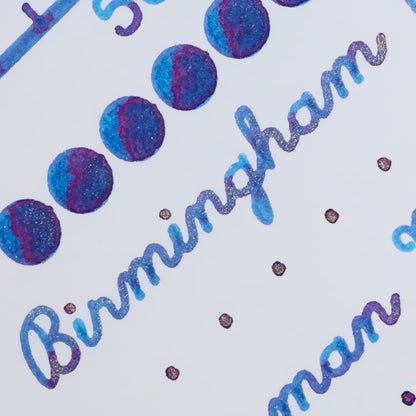 5
Birmingham
man